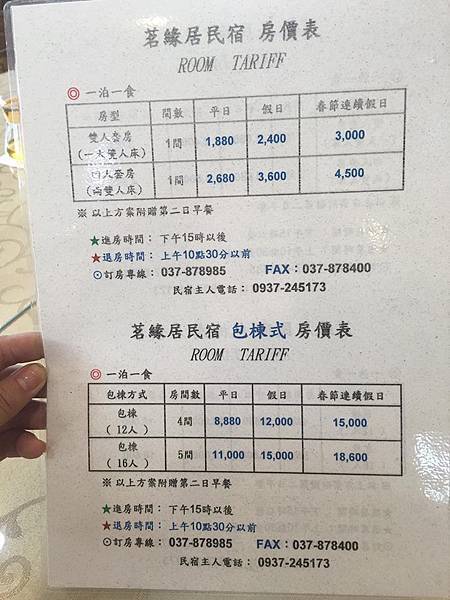 茗緣居民宿 房價表
ROOM TARIFF
◎ 一泊一食
房型 間數 平日 假日 春節連續假日
雙人套房 (一大雙人床) 1間 1,880 2,400 3,000
四人套房 (兩雙人床) 1間 2,680 3,600 4,500
※ 以上方案附贈第二日早餐
★進房時間： 下午15時以後
★退房時間： 上午10點30分以前
⊙訂房專線： 037-878985 FAX：037-878400
民宿主人電話： 0937-245173
茗緣居民宿 包棟式 房價表
ROOM TARIFF
◎ 一泊一食
包棟方式 房間數 平日 假日 春節連續假日
包棟 ( 12人 ) 4間 8,880 12,000 15,000
包棟 ( 16人 ) 5間 11,000 15,000 18,600
※ 以上方案附贈第二日早餐
★進房時間： 下午15時以後
★退房時間： 上午10點30分以前
⊙訂房專線： 037-878985 FAX：037-878400
民宿主人電話： 0937-245173